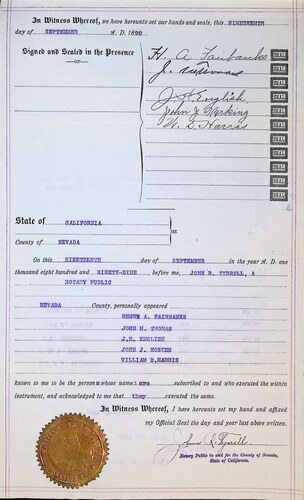 In Witness Whereof, we have hereunto set our hands and seals, this NINETEENTH
day of SEPTEMBER A. D. 1899
Signed and Sealed in the Presence
—OF—
H. A. Fairbanks
J.
J. H. English
John J.
W. D. Harris
State of CALIFORNIA
ss.
County of NEVADA
On this NINETEENTH day of SEPTEMBER in the year A. D.
one thousand eight hundred and NINETY-NINE, before me, JOHN R. TYRRELL, A
NOTARY PUBLIC
NEVADA County, personally appeared
A. FAIRBANKS
JOHN M. THOMAS
J.H. ENGLISH
JOHN J. HOSKEN
WILLIAM D.HARRIS
known to me to be the persons whose names are subscribed to and who executed the within
instrument, and acknowledged to me that they executed the same.
In Witness Whereof, I have hereunto set my hand and affixed
my Official Seal the day and year last above written.
John R. Tyrrell
Notary Public in and for the County of Nevada,
State of California.